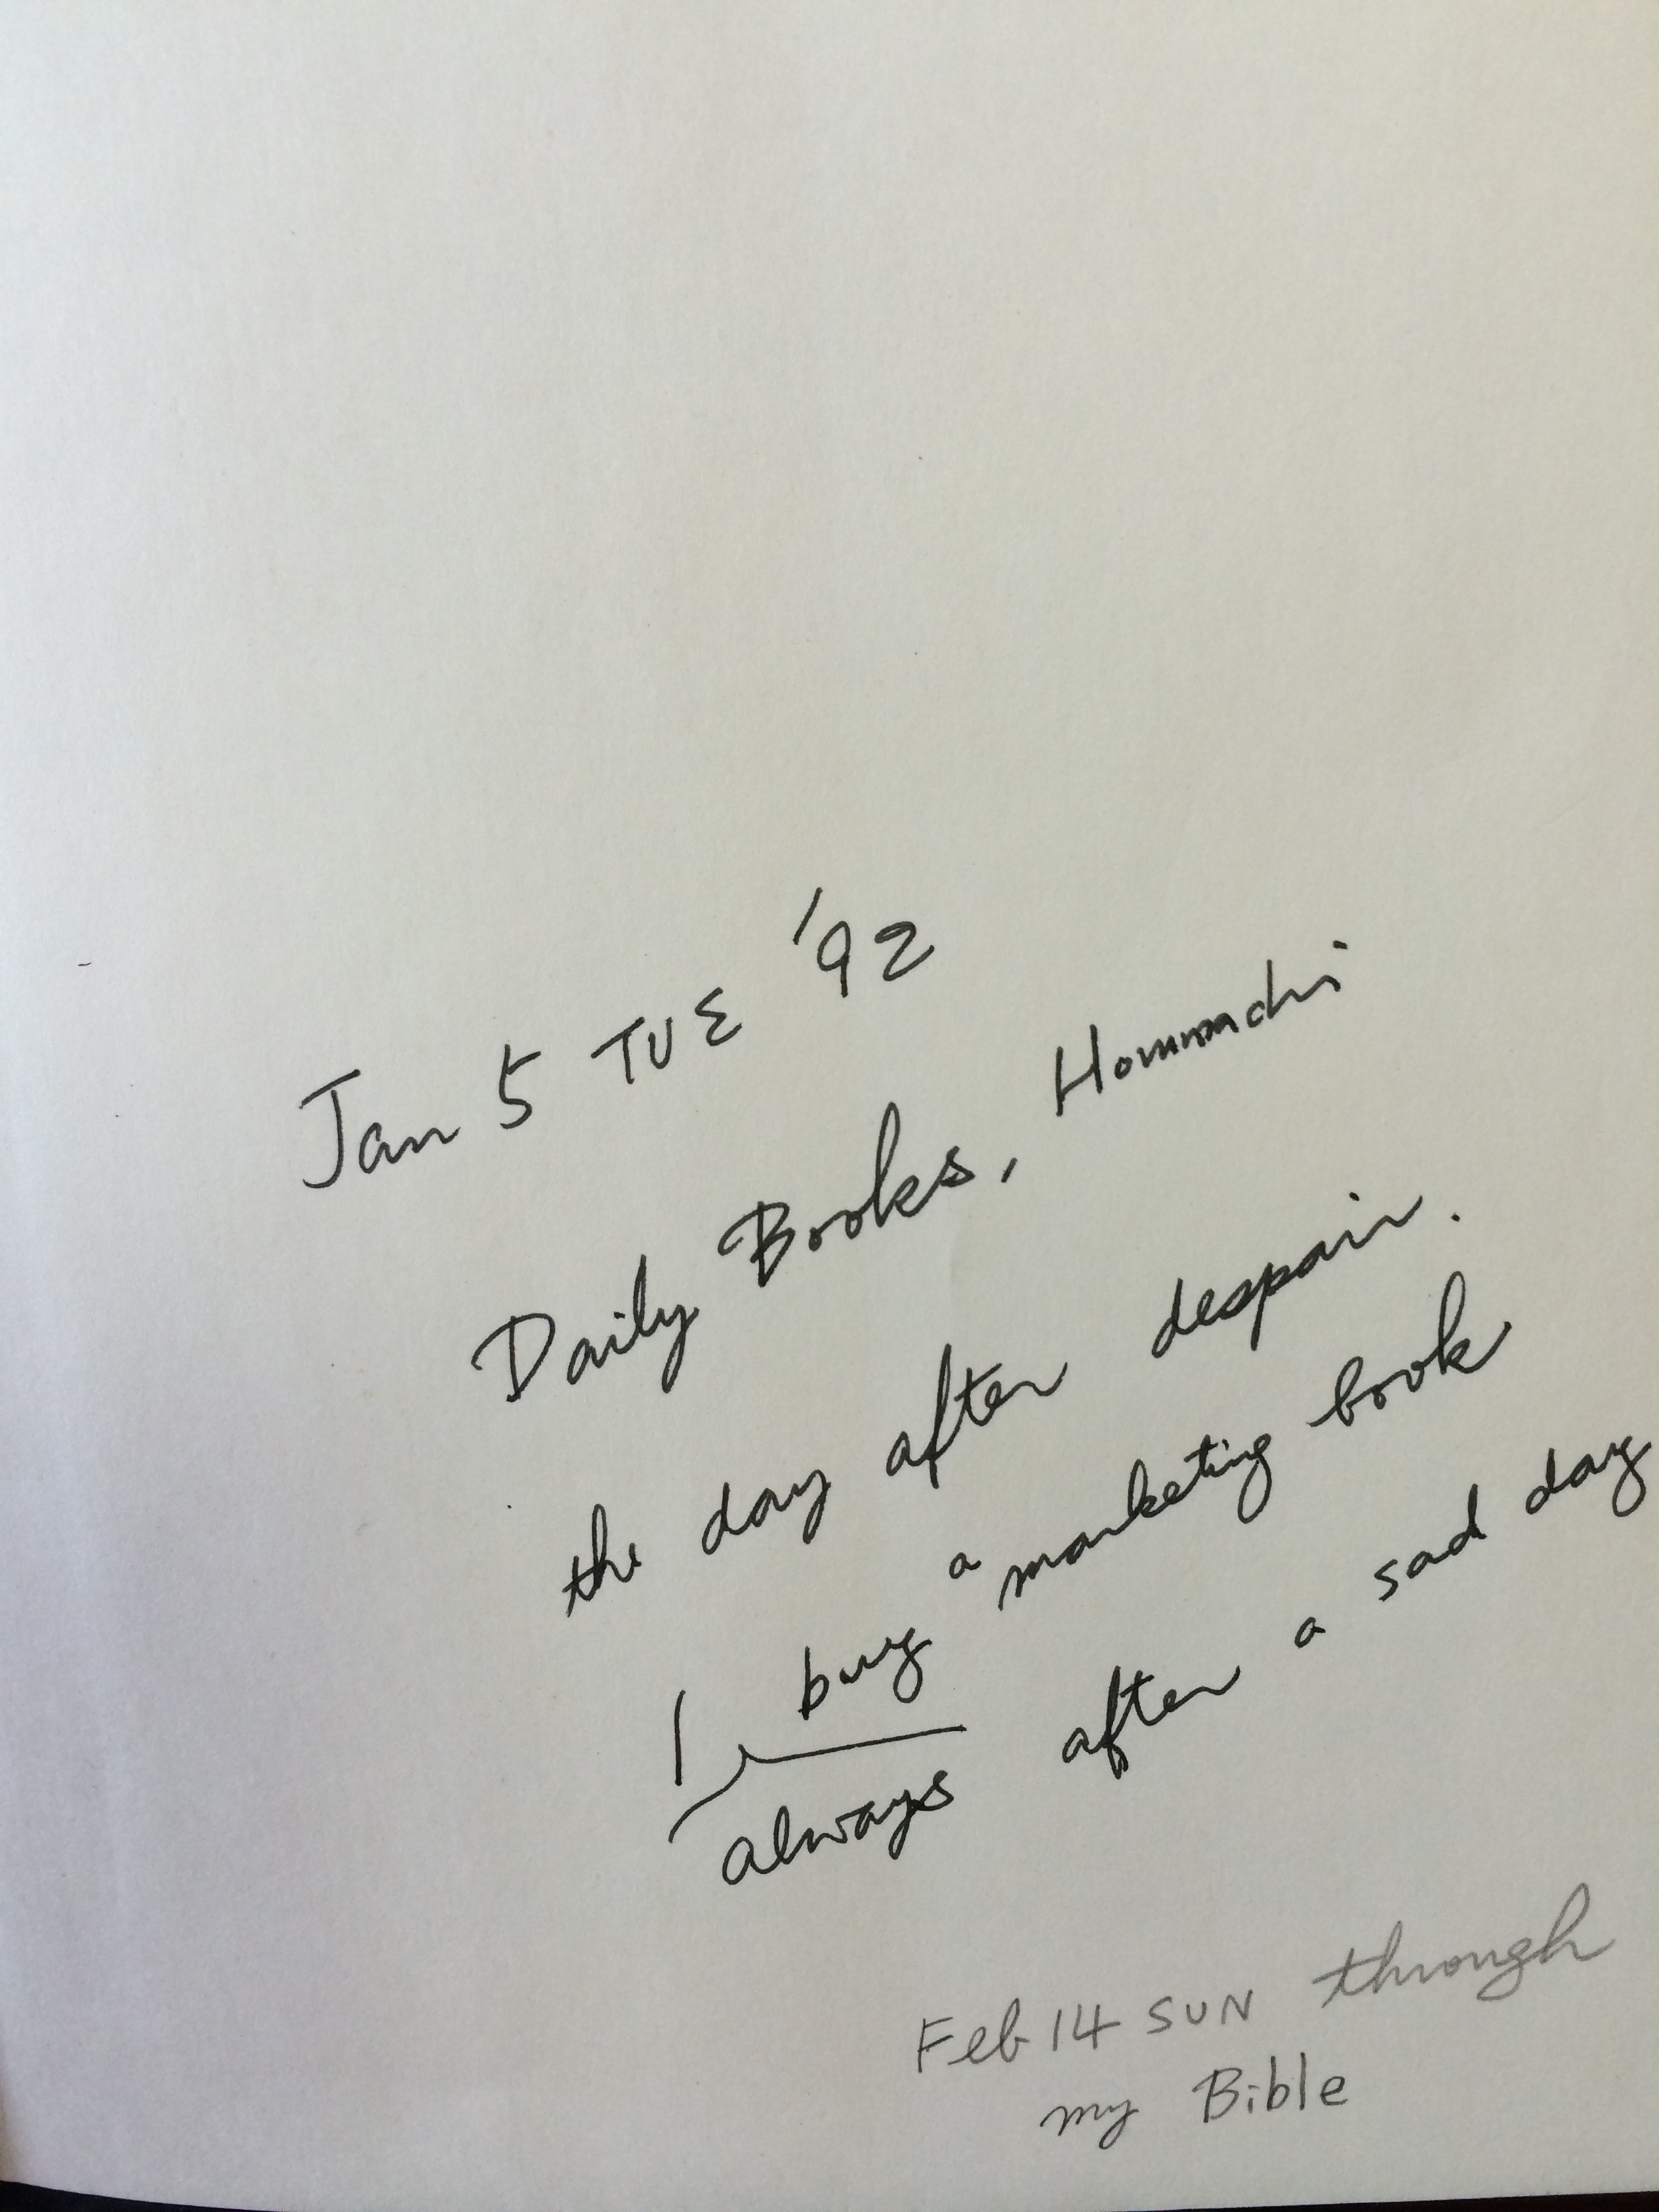 Jan 5 TUE '92
Daily Books, Hommachi
the day after despair.
I buy a marketing book
always after a sad day
Feb 14 SUN through
my Bible